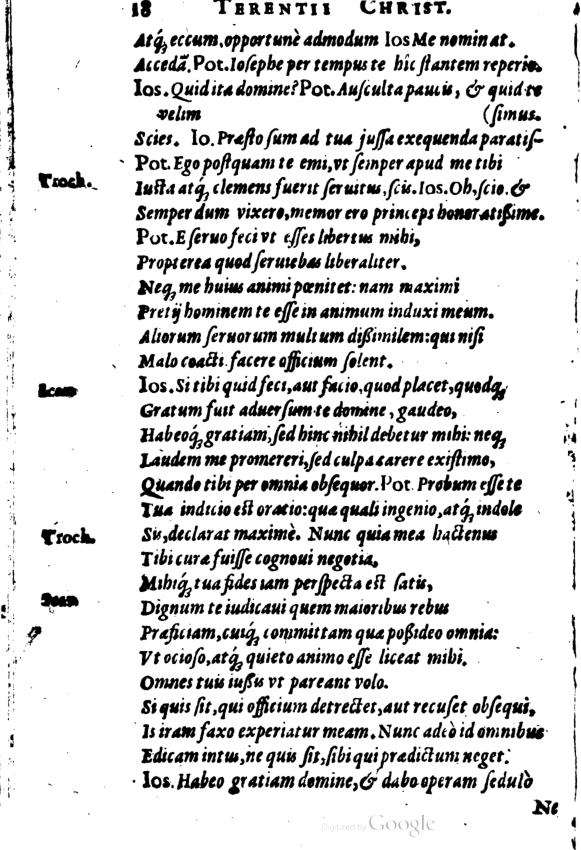 18 TERENTII CHRIST.
Atq́; eccum, opportunè admodum Ios Me nominat.
Accedã. Pot. Iosephe per tempus te hîc ſtantem reperio.
Ios. Quid ita domine? Pot. Auſculta paucis, & quid te
velim (ſimus.
Scies. Io. Præſto ſum ad tua juſſa exequenda paratiſ-
Pot. Ego poſtquam te emi, vt ſemper apud me tibi
Troch. Iuſta atq́; clemens fuerit ſeruitus, ſcis. Ios. Oh, ſcio. &
Semper dum vixero, memor ero princeps honoratiſſime.
Pot. E ſeruo feci vt eſſes libertus mihi,
Propterea quod ſeruiebas liberaliter.
Neq; me huius animi pœnitet: nam maximi
Pretij hominem te eſſe in animum induxi meum.
Aliorum ſeruorum multum dißimilem: qui niſi
Malo coacti facere officium ſolent.
Scan Ios. Si tibi quid feci, aut facio, quod placet, quodq;
Gratum fuit aduerſum te domine, gaudeo,
Habeoq́; gratiam, ſed hinc nihil debetur mihi: neq;
Laudem me promereri, ſed culpa carere exiſtimo,
Quando tibi per omnia obſequor. Pot. Probum eſſe te
Tua indicio eſt oratio: quæ quali ingenio, atq́; indole
Troch. Sis, declarat maximè. Nunc quia mea hactenus
Tibi curæ fuiſſe cognoui negotia,
Mihiq́; tua fides iam perſpecta eſt ſatis,
Scan Dignum te iudicaui quem maioribus rebus
Præficiam, cuiq́; committam quæ poßideo omnia:
Vt ocioſo, atq́; quieto animo eſſe liceat mihi.
Omnes tuis iußis vt pareant volo.
Si quis ſit, qui officium detrectet, aut recuſet obſequi,
Is iram faxo experiatur meam. Nunc adeò id omnibus
Edicam intus, ne quis ſit, ſibi qui prædictum neget.
Ios. Habeo gratiam domine, & dabo operam ſedulò
Ne
Digitized by Google